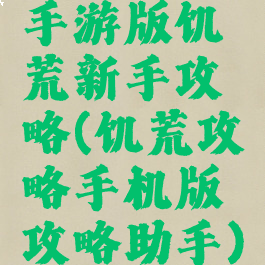 手游版饥
荒新手攻
略(饥荒攻
略手机版
攻略助手)